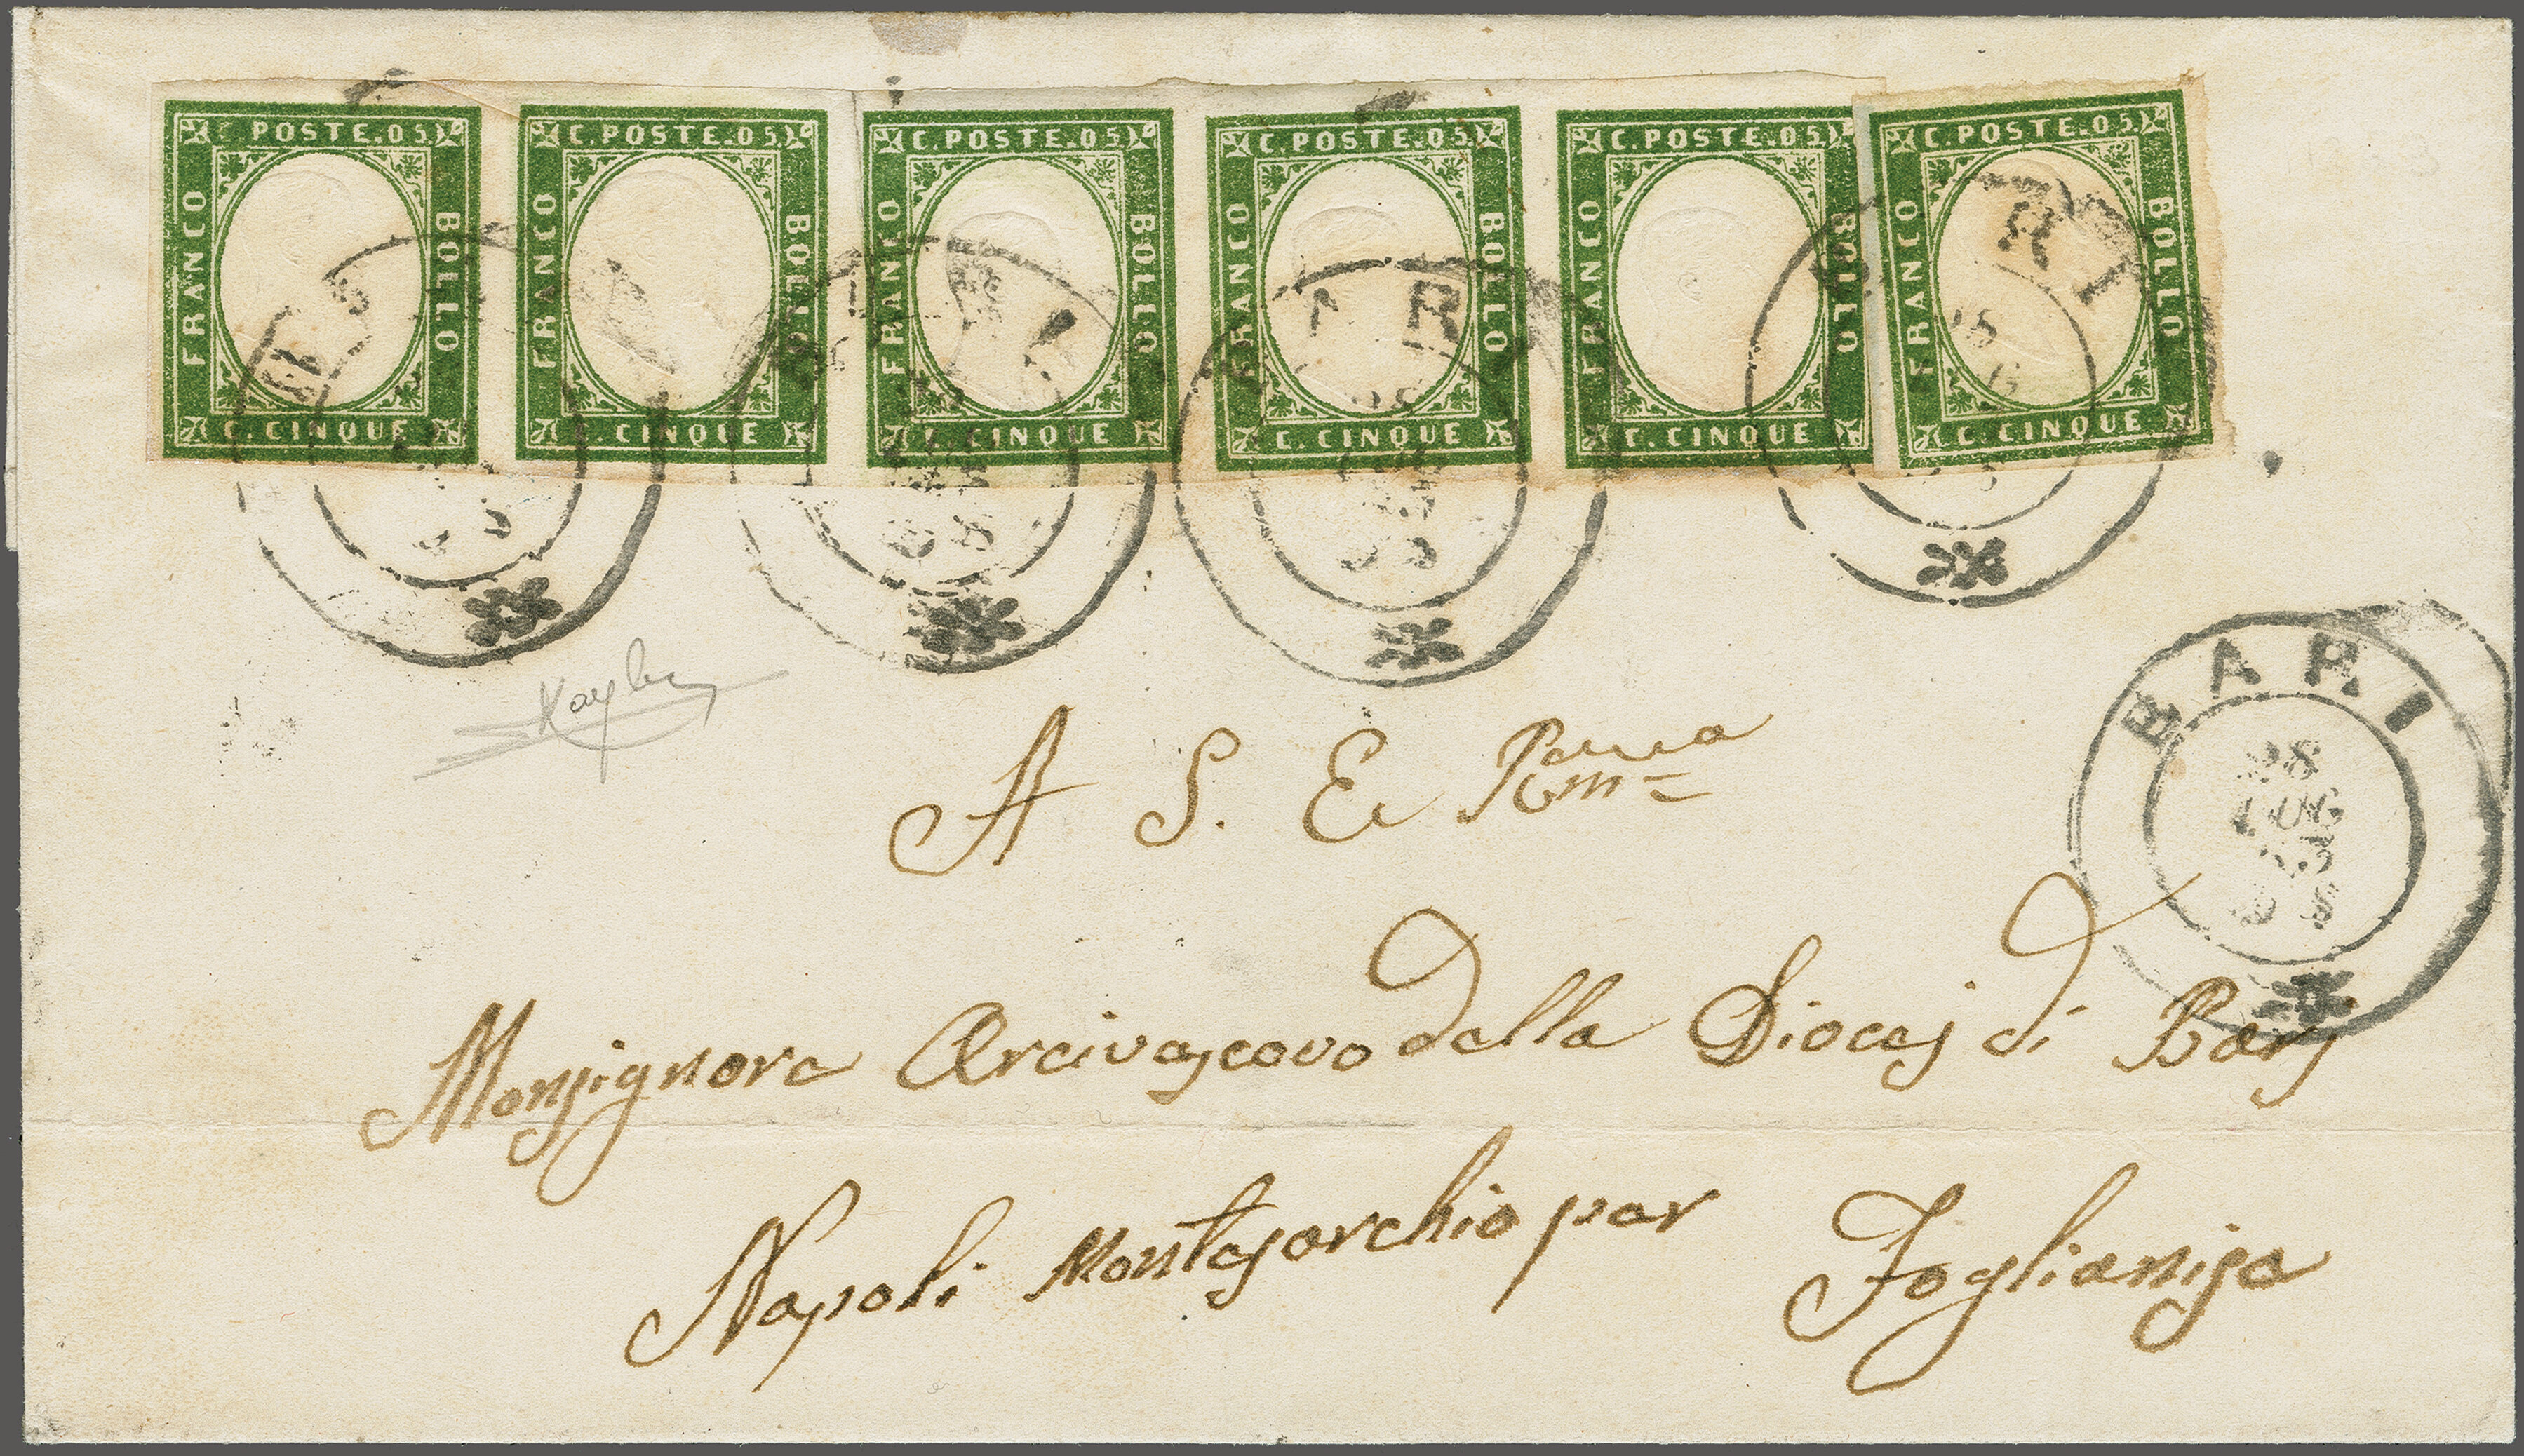 C. POSTE. 05. C. POSTE. 05. C. POSTE. 05. C. POSTE. 05. C. POSTE. 05. C. POSTE. 05.
FRANCO BOLLO FRANCO BOLLO FRANCO BOLLO FRANCO BOLLO FRANCO BOLLO FRANCO BOLLO
C. CINQUE C. CINQUE C. CINQUE C. CINQUE C. CINQUE C. CINQUE
BARI
28
LUG
63
A S. E. Rma
Monsignore Arcivescovo della Diocesi di Bari
Napoli Montesarchio per Foglianisa